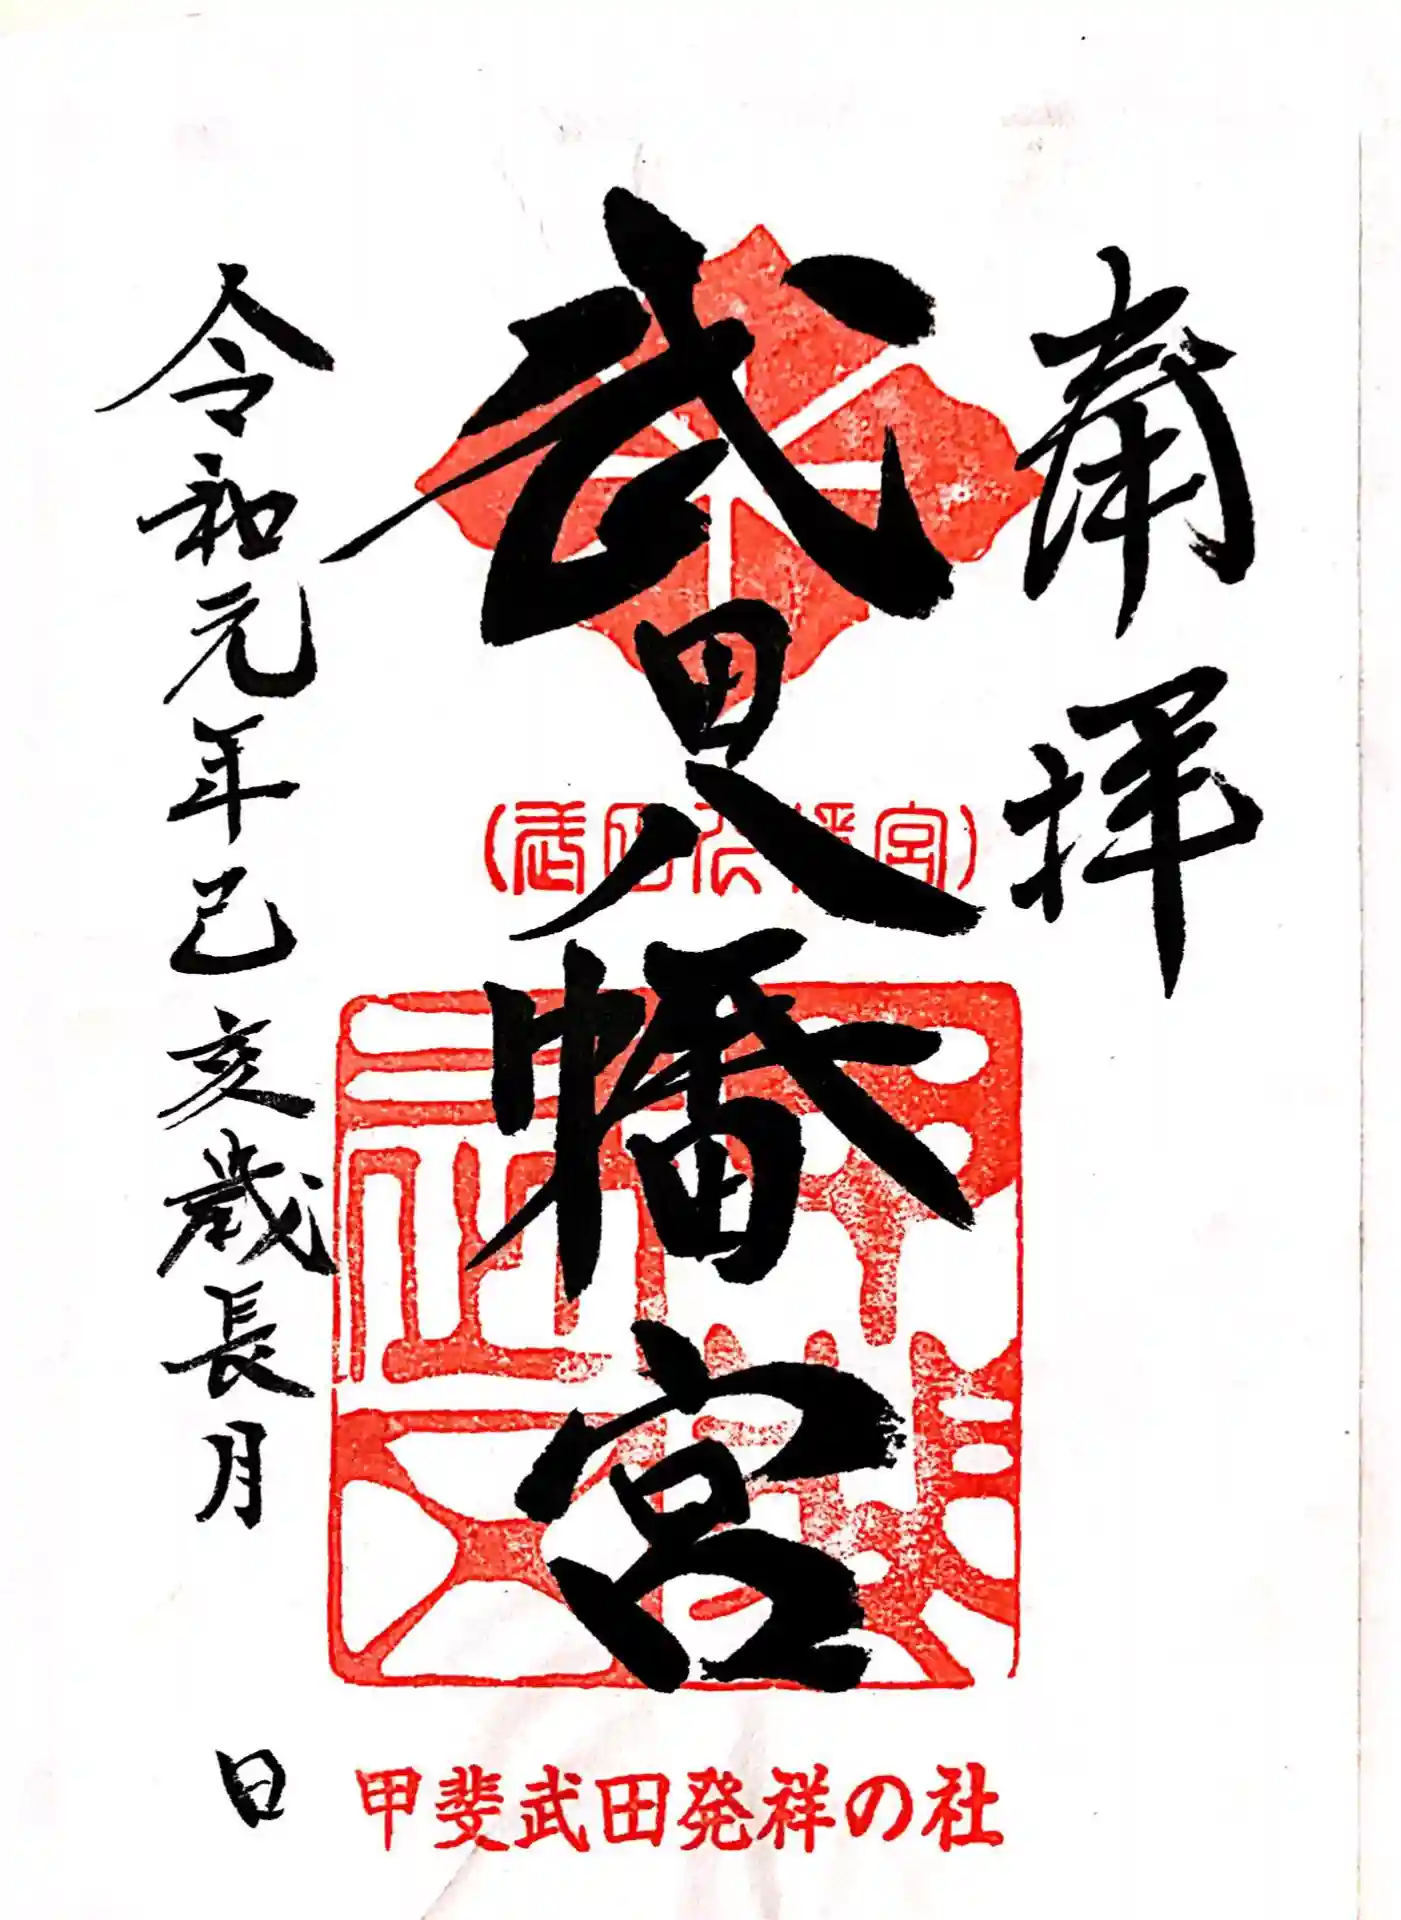 奉拝
武田八幡宮
(武田八幡宮)
令和元年己亥歳長月 日
甲斐武田発祥の社